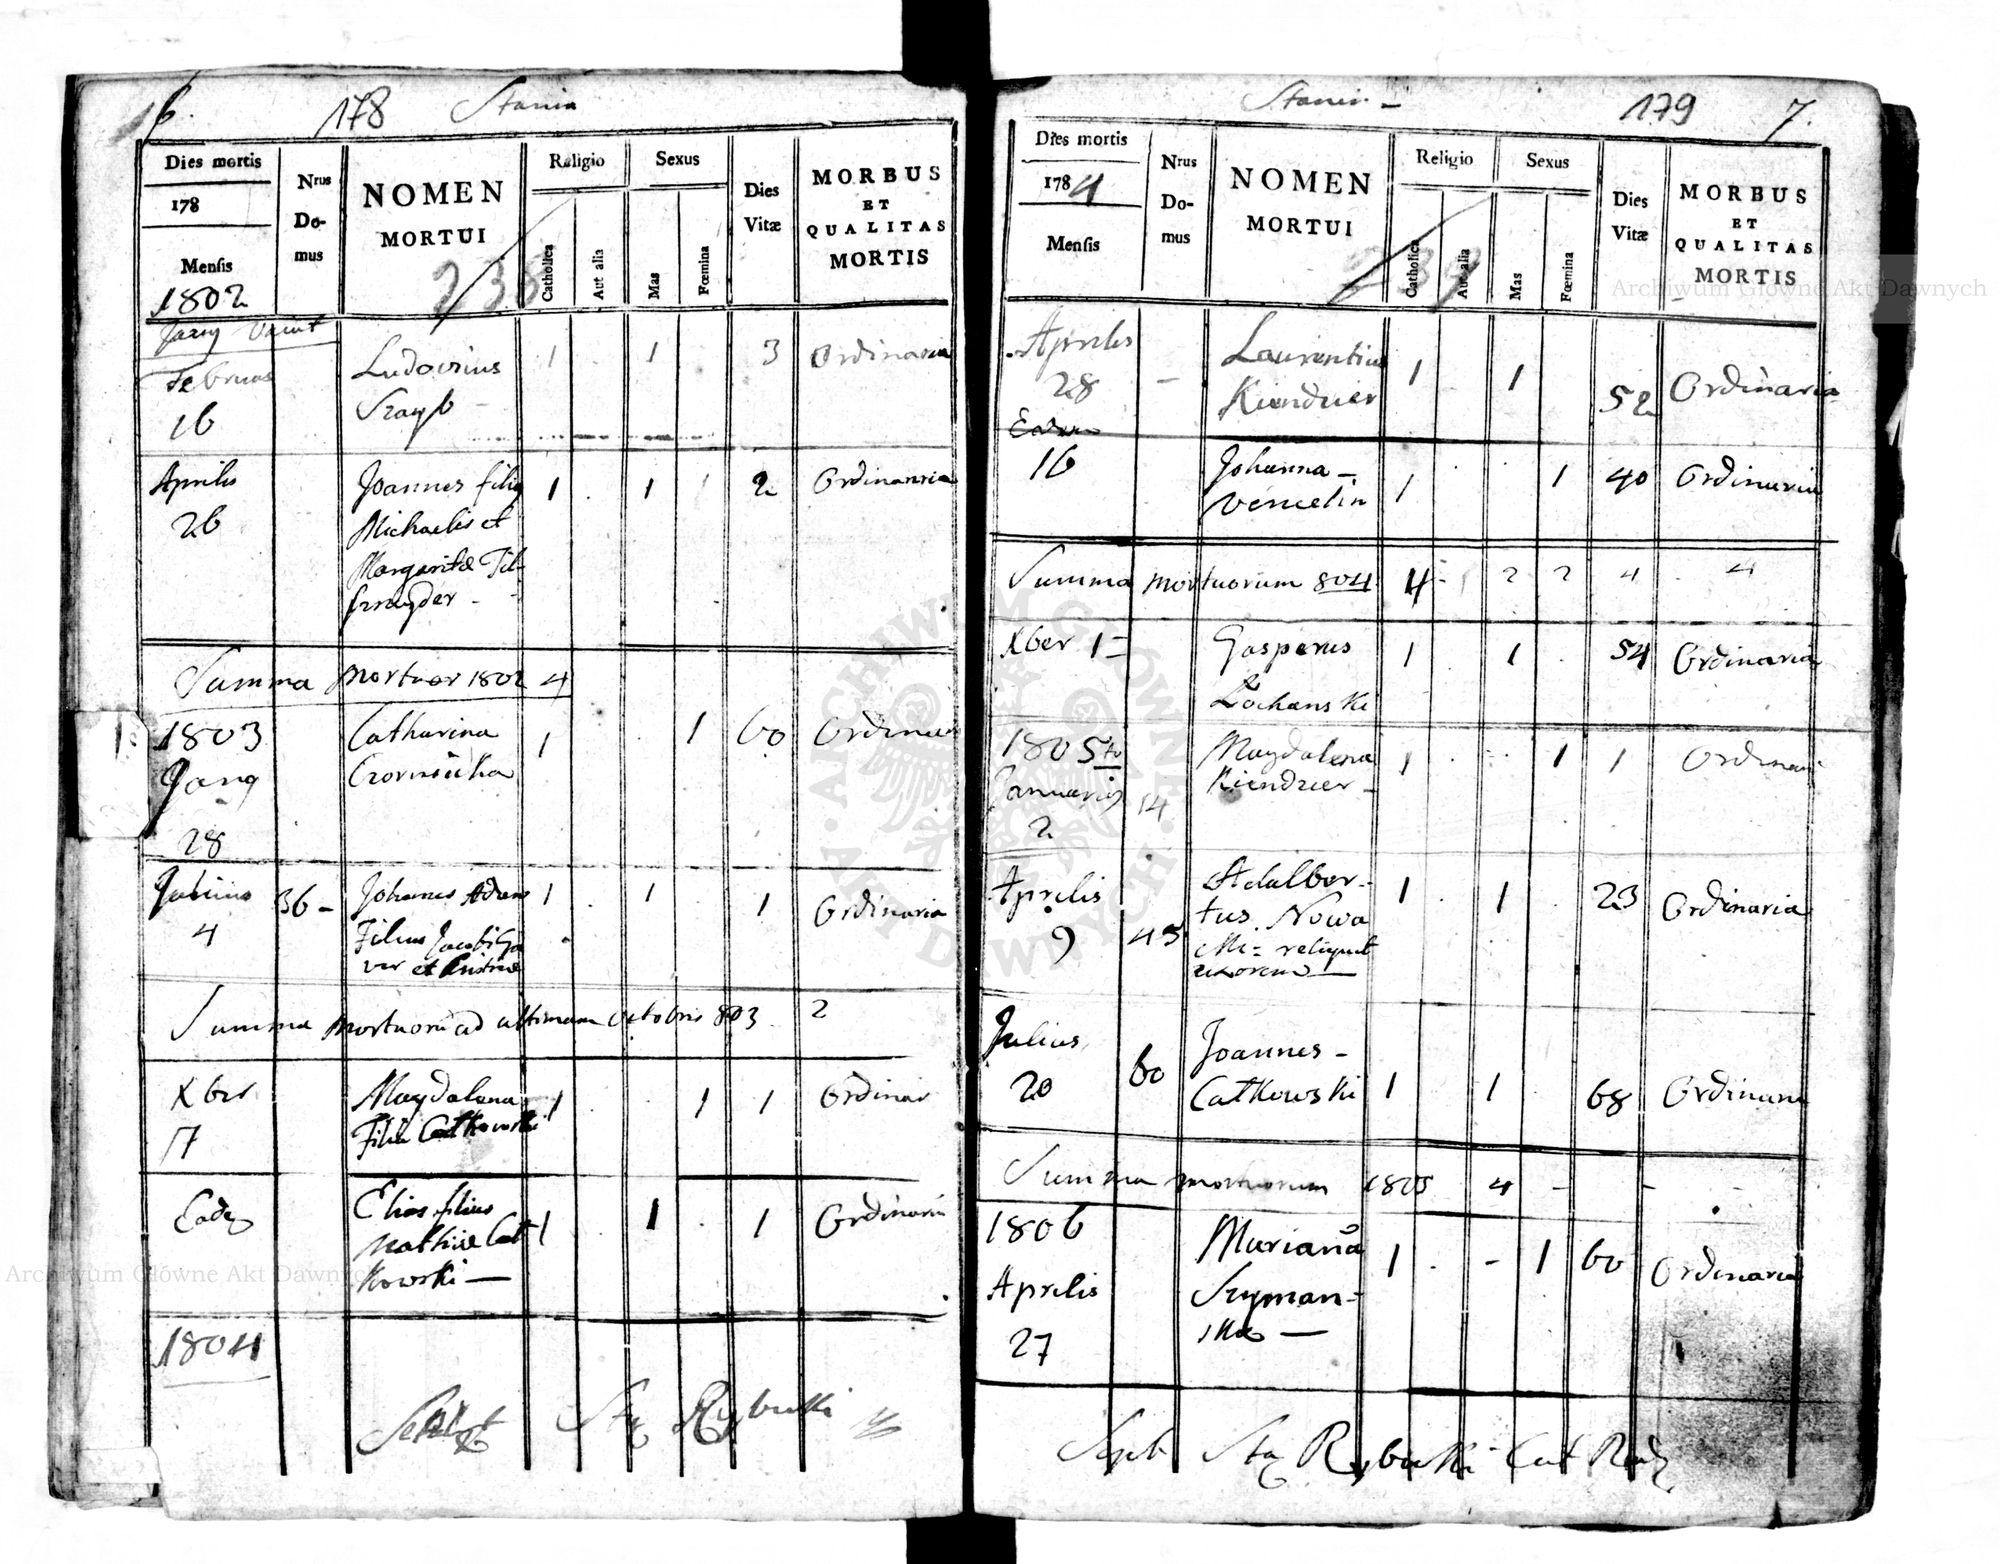 6.
178
Stania
Dies mortis
178
Mensis
1802
Nrus
Do-
mus
NOMEN
MORTUI
238
Religio
Catholica
Aut alia
Sexus
Mas
Fœmina
Dies
Vitæ
MORBUS
ET
QUALITAS
MORTIS
Februas
16
Ludovicus
1 1 3 Ordinaria
Aprilis
26
Joannes filig
Michaelis et
Margaritæ Fil-
1 . 1 2 Ordinanria
Summa mortuor 1802 4
1803
Jang
28
Catharina
1 1 60 Ordinar
4
36 -
Johannes Adam
Filius Jacobi Ga
ver et Cristinæ
1 . 1 . 1 Ordinaria
Summa mortuorū ad ultimam Octobris 803 2
Xber
17
Magdalena
Filia Catkowski
1 1 1 Ordinar
Eadē
Elias filius
Mathiæ Cat
kowski —
1 1 . 1 Ordinaria
1804
Stax Rybicki
Stanin -
179
7.
Dies mortis
1784
Mensis
Nrus
Do-
mus
NOMEN
MORTUI
239
Religio
Catholica
Aut alia
Sexus
Mas
Fœmina
Dies
Vitæ
MORBUS
ET
QUALITAS
MORTIS
Aprilis
28
-
Laurentius
Kiendzier
1 1 52 Ordinaria
16
Johanna -
Vencelin
1 1 40 Ordinaria
Summa mortuorum 804 4 - 2 2 4 4
Xber 1 =
Gasperus
Łochanski
1 1 . 54 Ordinaria
1805to
Januarig
2
14
Magdalena
Kiendzier -
1 1 1 Ordinari
Aprilis
9
45
Adalber-
tus Nowa
cki = reliquit
uxorem —
1 . 1 . 23 Ordinaria
Julius
20
60
Joannes -
Catkowski
1 . 1 68 Ordinaria
Summa mortuorum 1805 4 - - -
1806
Aprilis
27
Marianna
Szyman-
ska —
1 . - 1 60 Ordinaria
Stax Rybicki
Archiwum Główne Akt Dawnych
Archiwum Główne Akt Dawnych
ARCHIWUM GŁÓWNE
AKT DAWNYCH